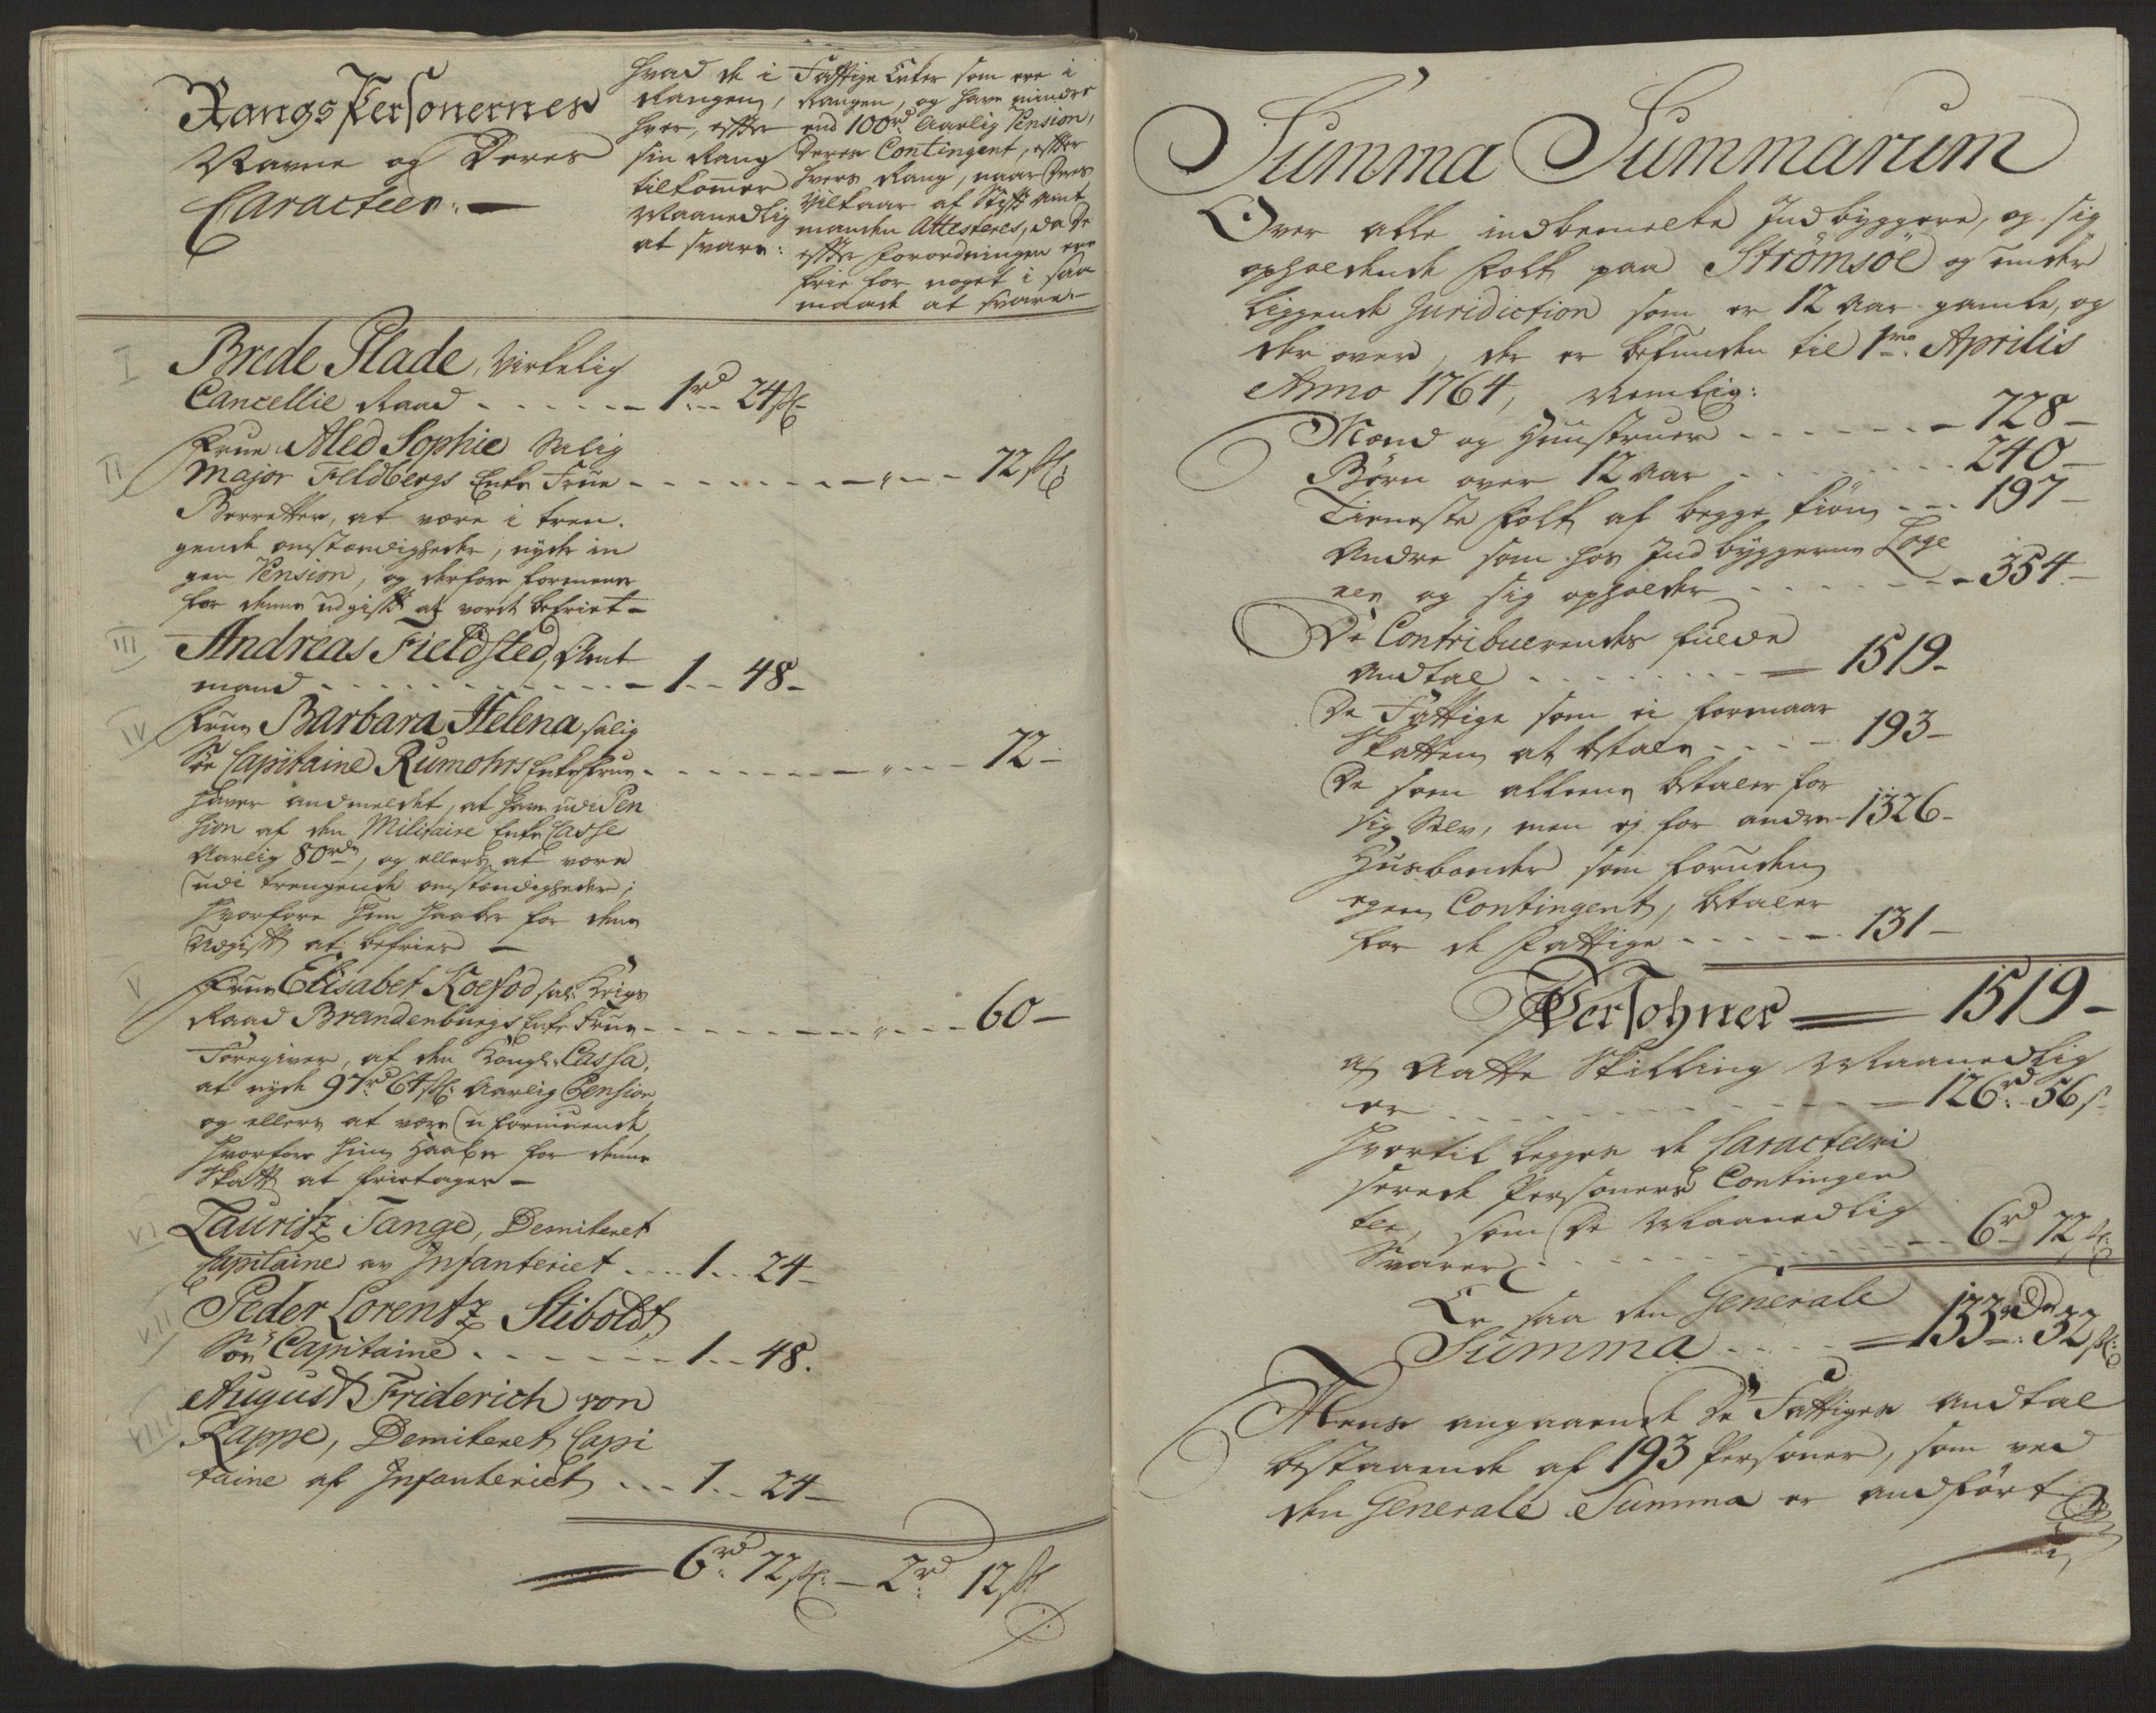 Rangs Personernes
Navne og Deres
Caracteer.
hvad de i
Rangen,
hver, efter
sin Rang
tilkommer
Maanedlig
at svare:
Fattige Enker som ere i
Rangen, og have mindre
end 100rd Aarlig Pension,
deres Contingent, efter
hvers Rang, naar deres
Vilkaar af Stift Amt
manden Attesteres, da de
efter Forordningen ere
frie for noget i saa
maade at svare.
I
Brede Plade, Virkelig
Cancellie Raad - - - - - - 1rd - 24ß
II
Frue Aled Sophie Salig
Major Feldbergs Enke Frue - - - - - - - - - 72ß
Berretter, at være i tren-
gende omstændigheder, nyde in
gen Pension, og derfore formener
for denne udgift at vorde befriet -
III
Andreas Fieldsted, Amt
mand - - - - - - - - - - - 1 - - 48 -
IV
Frue Barbara Helena, salig
Söe Capitaine Rumohrs Enke Frue - - - - - - - - - 72 -
haver andmeldet, at have udi Pen
sion af den Militaire Enke Casse
Aarlig 80rdr, og ellers at være
udi trengende omstændigheder;
hvorfore hun haaber for denne
Udgift at befries -
V
Frue Elisabet Koefod sal: Krigs
Raad Brandenburgs Enke Frue - - - - - - - - - 60 -
Foregiver, af den Kongl: Cassa,
at nyde 97rd 64ß: Aarlig Pension
og ellers at være u formuende
hvorfore hun Haaber for denne
Skatt at frietages -
VI
Lauritz Tange, Demiteret
Capitaine av Infanteriet - - - 1 - - 24 -
VII
Peder Lorentz Stiboldt,
Söe Capitaine - - - - - - - 1 - - 48.
VIII
August Friderich von
Kappe, Demiteret Capi
taine af Infanteriet - - - 1 - - 24 -
6rd: 72ß: - 2rd: 12ß
Summa Summarum
Over alle indbemelte Indbyggere, og sig
opholdende Folk paa Strömsöe og under
liggende Juridiction som er 12 Aar gamle, og
der over, der er befunden til 1mo Aprilis
Anno 1764, Nemlig:
Mænd og Huustruer - - - - - - - 728 -
Börn over 12 Aar - - - - - - - - 240 -
Tieneste Folk af begge Kiön - - - 197 -
Andre som hos Indbyggerne Loge
rer og sig opholder - - - - - - - 354 -
De Contribuerendes fulde
Andtal - - - - - - - - - 1519 -
De Fattige som ei formaar
Skatten at betale - - - - 193 -
De som alleene betaler for
sig Selv, men ej for andre - 1326 -
Husbonder som foruden
egen Contingent, betaler
for de Fattige - - - - - 131 -
Persohner - 1519 -
a Aatte Skilling Maanedlig
er - - - - - - - - - - - 126rd: 56ß
Hvortil legges de Caracteeri
serede Personers Contingen
ter, som de Maanedlig
Svarer - - - - - - - - - - 6rd 72ß:
Er saa den Generale
Summa - - - - - 133rdr: 32ß:
Mens angaaende De Fattiges Andtal
bestaaende af 193 Personer, som ved
den Generale Summa er andfört